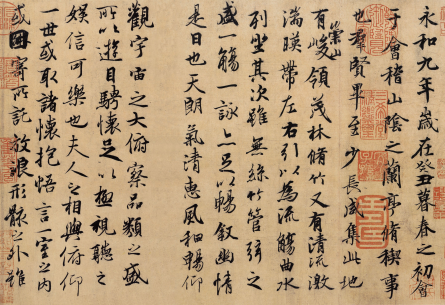 永和九年歲在癸丑暮春之初會
于會稽山陰之蘭亭脩禊事
也羣賢畢至少長咸集此地
有崇山峻領茂林脩竹又有清流激
湍暎帶左右引以為流觴曲水
列坐其次雖無絲竹管弦之
盛一觴一詠亦足以暢叙幽情
是日也天朗氣清惠風和暢仰
觀宇宙之大俯察品類之盛
所以遊目騁懷足以極視聽之
娛信可樂也夫人之相與俯仰
一世或取諸懷抱悟言一室之內
或因寄所託放浪形骸之外雖